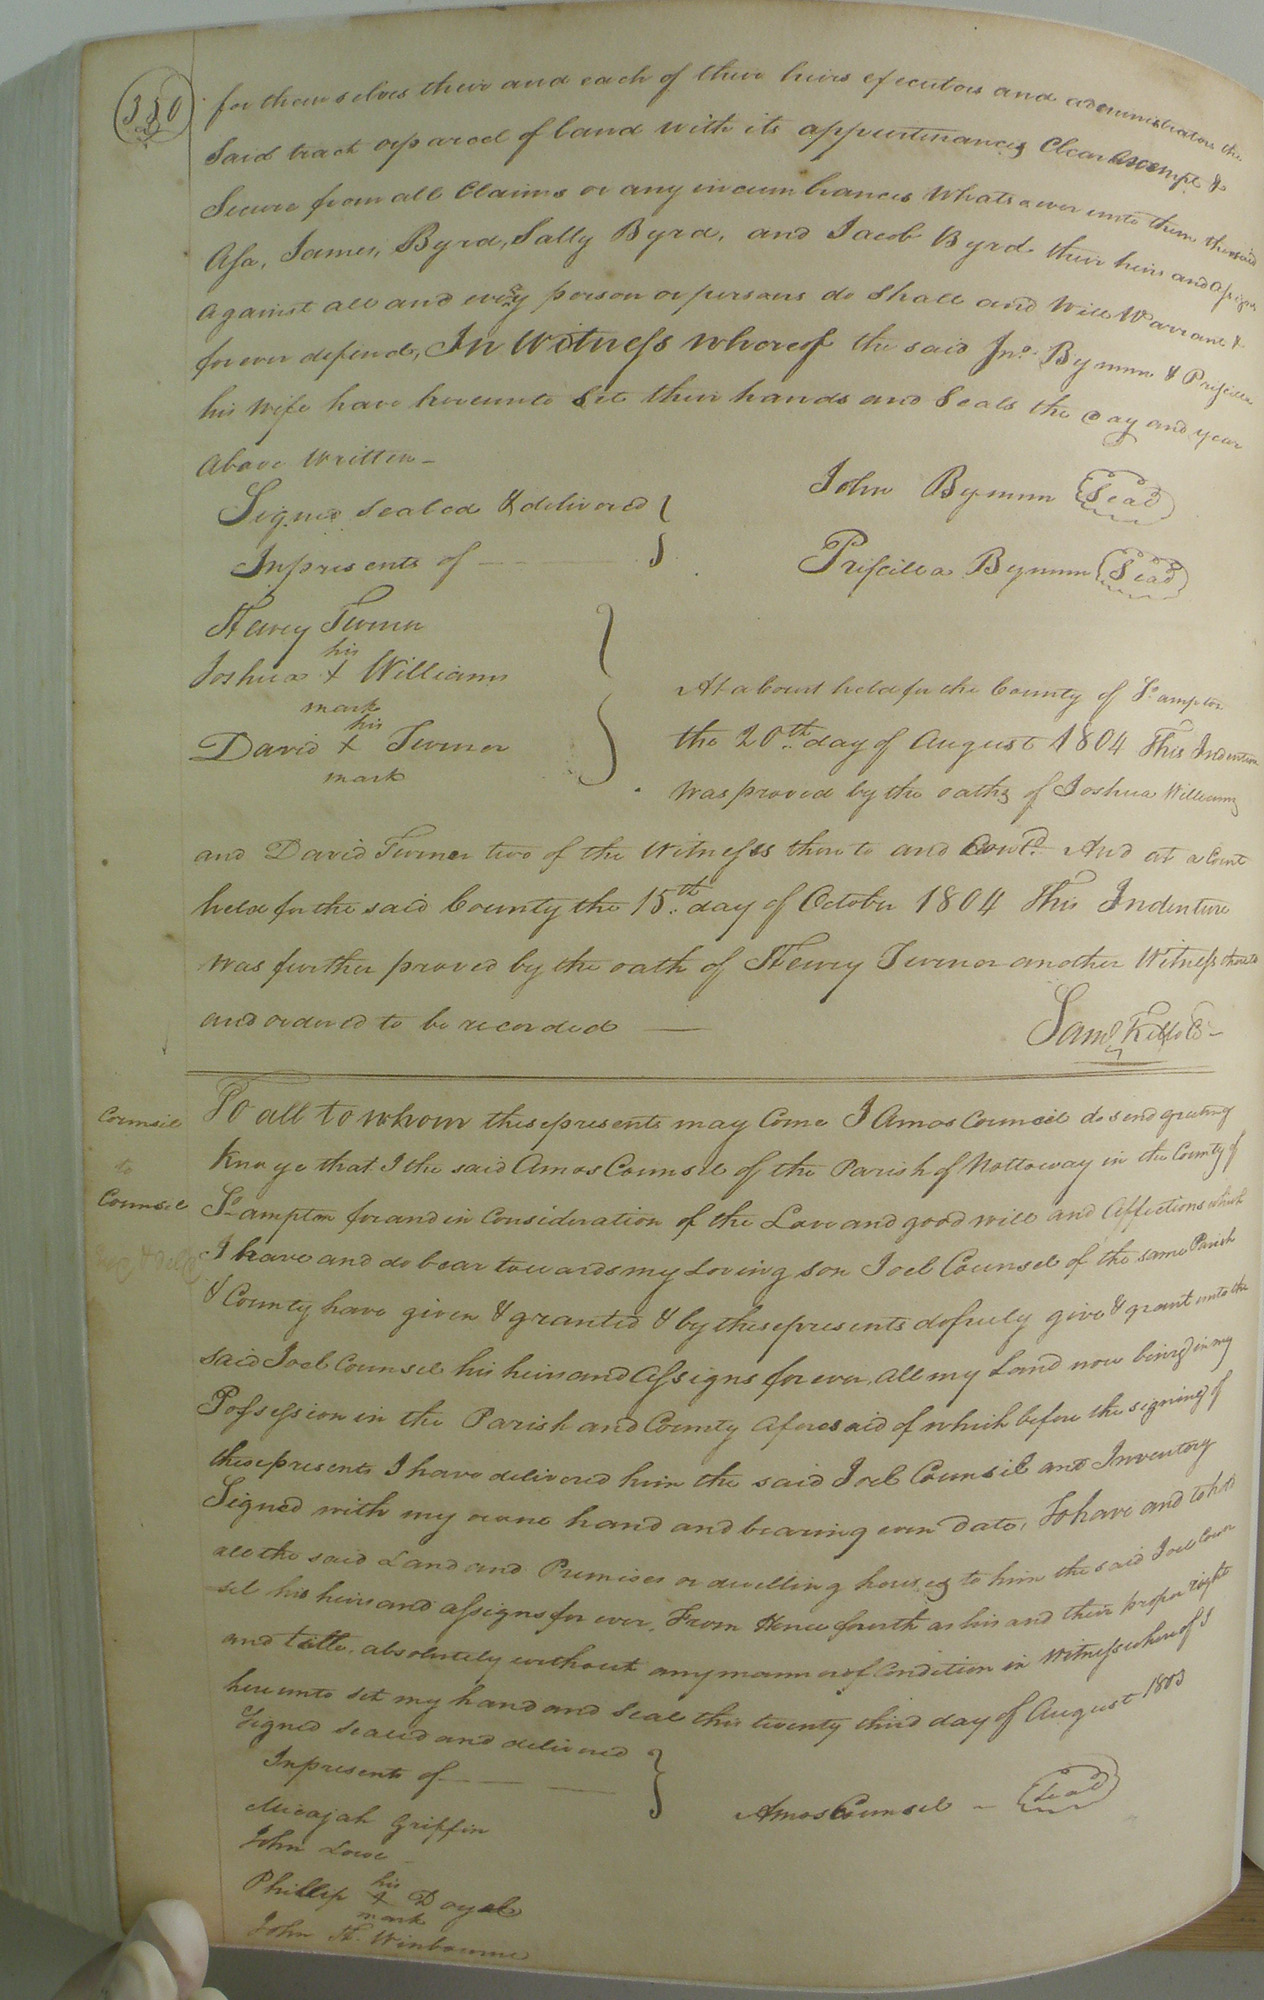 380
for themselves their and each of their heirs executors and administrators the
Said tract or parcel of land with its appurtinances Clear Exempt &
Secure from all Claims or any incumbrances Whatsoever unto them the said
Asa, James, Byrd, Sally Byrd, and Jacob Byrd their heirs and assigns
against all and every person or persons do Shall and Will Warrant &
forever defend, In Witness whereof the said Jno. Bynum & Priscilla
his Wife have hereunto Set their hands and Seals the day and year
Above Written -
Signed Sealed & delivered
In presents of
John Bynum Seal
Priscilla Bynum Seal
Henry Turner
his
Joshua + Williams
mark
his
David + Turner
mark
At a Court held for the County of So. ampton
the 20th. day of August 1804 This Indenture
Was proved by the oaths of Joshua Williams
and David Turner two of the Witnesses there to and Contd. And at a Court
held for the said County the 15th. day of October 1804 This Indenture
Was further proved by the oath of Henry Turner another Witness thereto
and ordered to be recorded
Saml. Kello C
Counsil
to
Counsel
To all to whom these presents may Come I Amos Counsel do send greeting
Know ye that I the said Amos Counsel of the Parish of Nottoway in the County of
So. ampton for and in Consideration of the Love and good will and Affections which
I have and do bear towards my Loving son Joel Counsel of the same Parish
& County have given & granted & by these presents do freely give & grant unto the
said Joel Counsel his heirs and Assigns for ever, all my Land now being in my
Possession in the Parish and County aforesaid of which before the signing of
these presents I have delivered him the said Joel Counsil and Inventory
Signed with my owne hand and bearing even Date, To have and to hold
all the said Land and Premises or dwelling houses to him the said Joel Coun
sel his heirs and assigns for ever, From Hence fourth as his and their proper right
and title, absolutely without any manner of Condition in Witness whereof I
hereunto set my hand and Seal this twenty third day of August 1803
Signed sealed and delivered
In presents of
Amos Counsel - Seal
Micajah Griffin
John Love
his
Phillip + Doyal
mark
John H. Winbourne